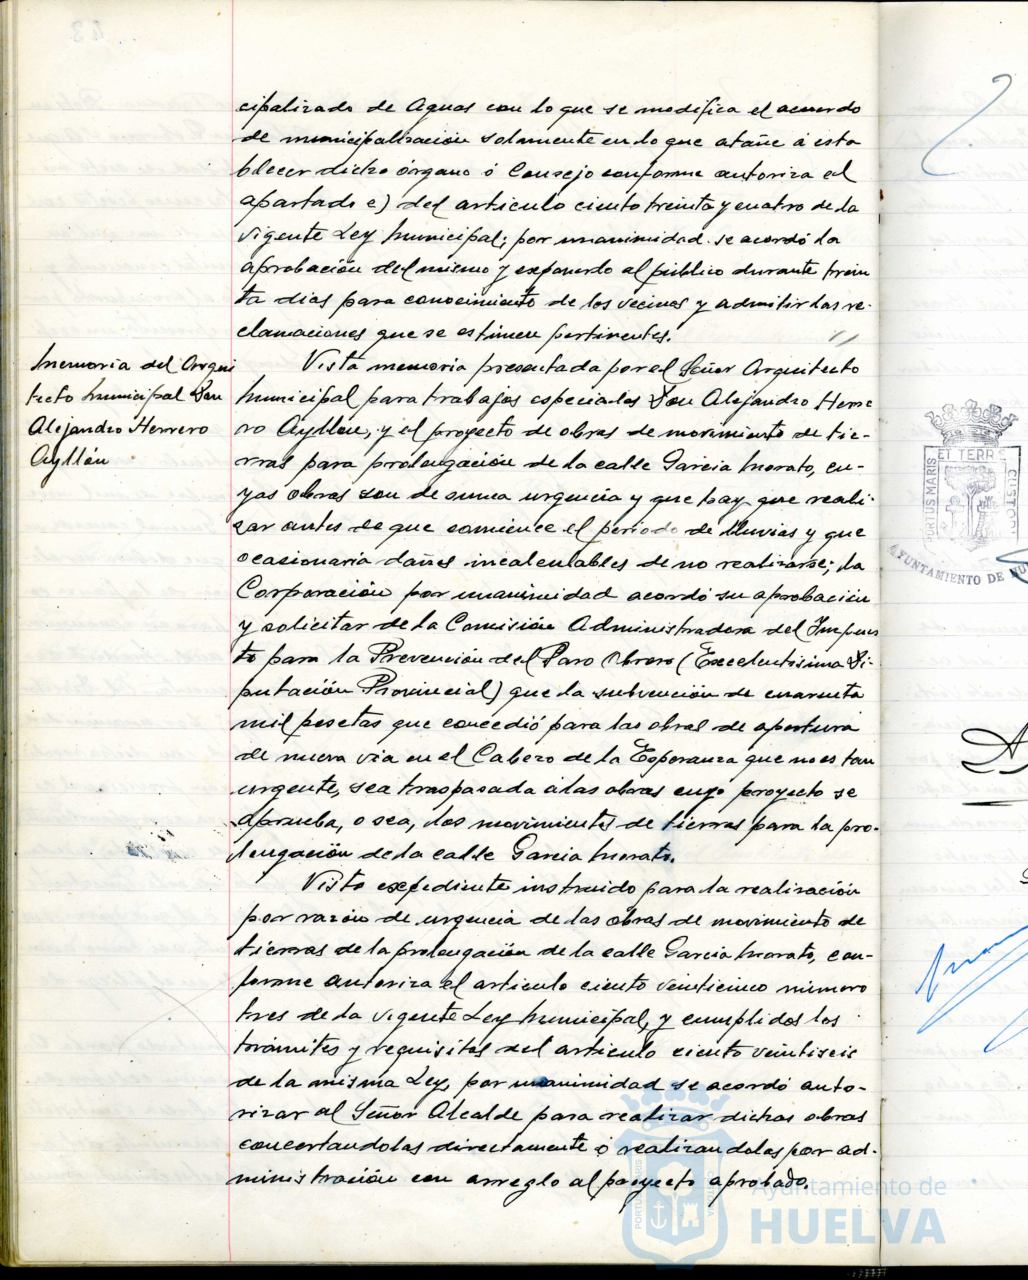 cipalizado de Aguas con lo que se modifica el acuerdo
de municipalización solamente en lo que atañe á esta
blecer dicho órgano ó Consejo conforme autoriza el
apartado e) del articulo ciento treinta y cuatro de la
vigente Ley Municipal; por unanimidad se acordó la
aprobación del mismo y exponerlo al público durante trein
ta dias para conocimiento de los vecinos y admitir las re-
clamaciones que se estimen pertinentes.
Memoria del Arqui
tecto Municipal Don
Alejandro Herrero
Ayllón
Vista memoria presentada por el Señor Arquitecto
Municipal para trabajos especiales Don Alejandro Herre
ro Ayllón, y el proyecto de obras de movimiento de tie-
rras para prolongación de la calle Garcia Morato, cu-
yas obras son de suma urgencia y que hay que reali-
zar antes de que comience el periodo de lluvias y que
ocasionaria daños incalculables de no realizarse; la
Corporación por unanimidad acordó su aprobación
y solicitar de la Comisión Administradora del Impues
to para la Prevención del Paro Obrero (Excelentisima Di-
putación Provincial) que la subvención de cuarenta
mil pesetas que concedió para las obras de apertura
de nueva via en el Cabezo de la Esperanza que no es tan
urgente, sea traspasada á las obras cuyo proyecto se
aprueba, o sea, los movimientos de tierras para la pro-
longación de la calle Garcia Morato.
Visto expediente instruido para la realización
por razón de urgencia de las obras de movimiento de
tierras de la prolongación de la calle Garcia Morato, con-
forme autoriza el articulo ciento veinticinco número
tres de la vigente Ley Municipal, y cumplidos los
trámites y requisitos del articulo ciento veintiseis
de la misma Ley, por unanimidad se acordó auto-
rizar al Señor Alcalde para realizar dichas obras
concertandolas directamente ó realizandolas por ad-
ministración con arreglo al proyecto aprobado.
PORTUS MARIS ET TERRE CUSTOD
AYUNTAMIENTO DE HU
Ayuntamiento de
HUELVA